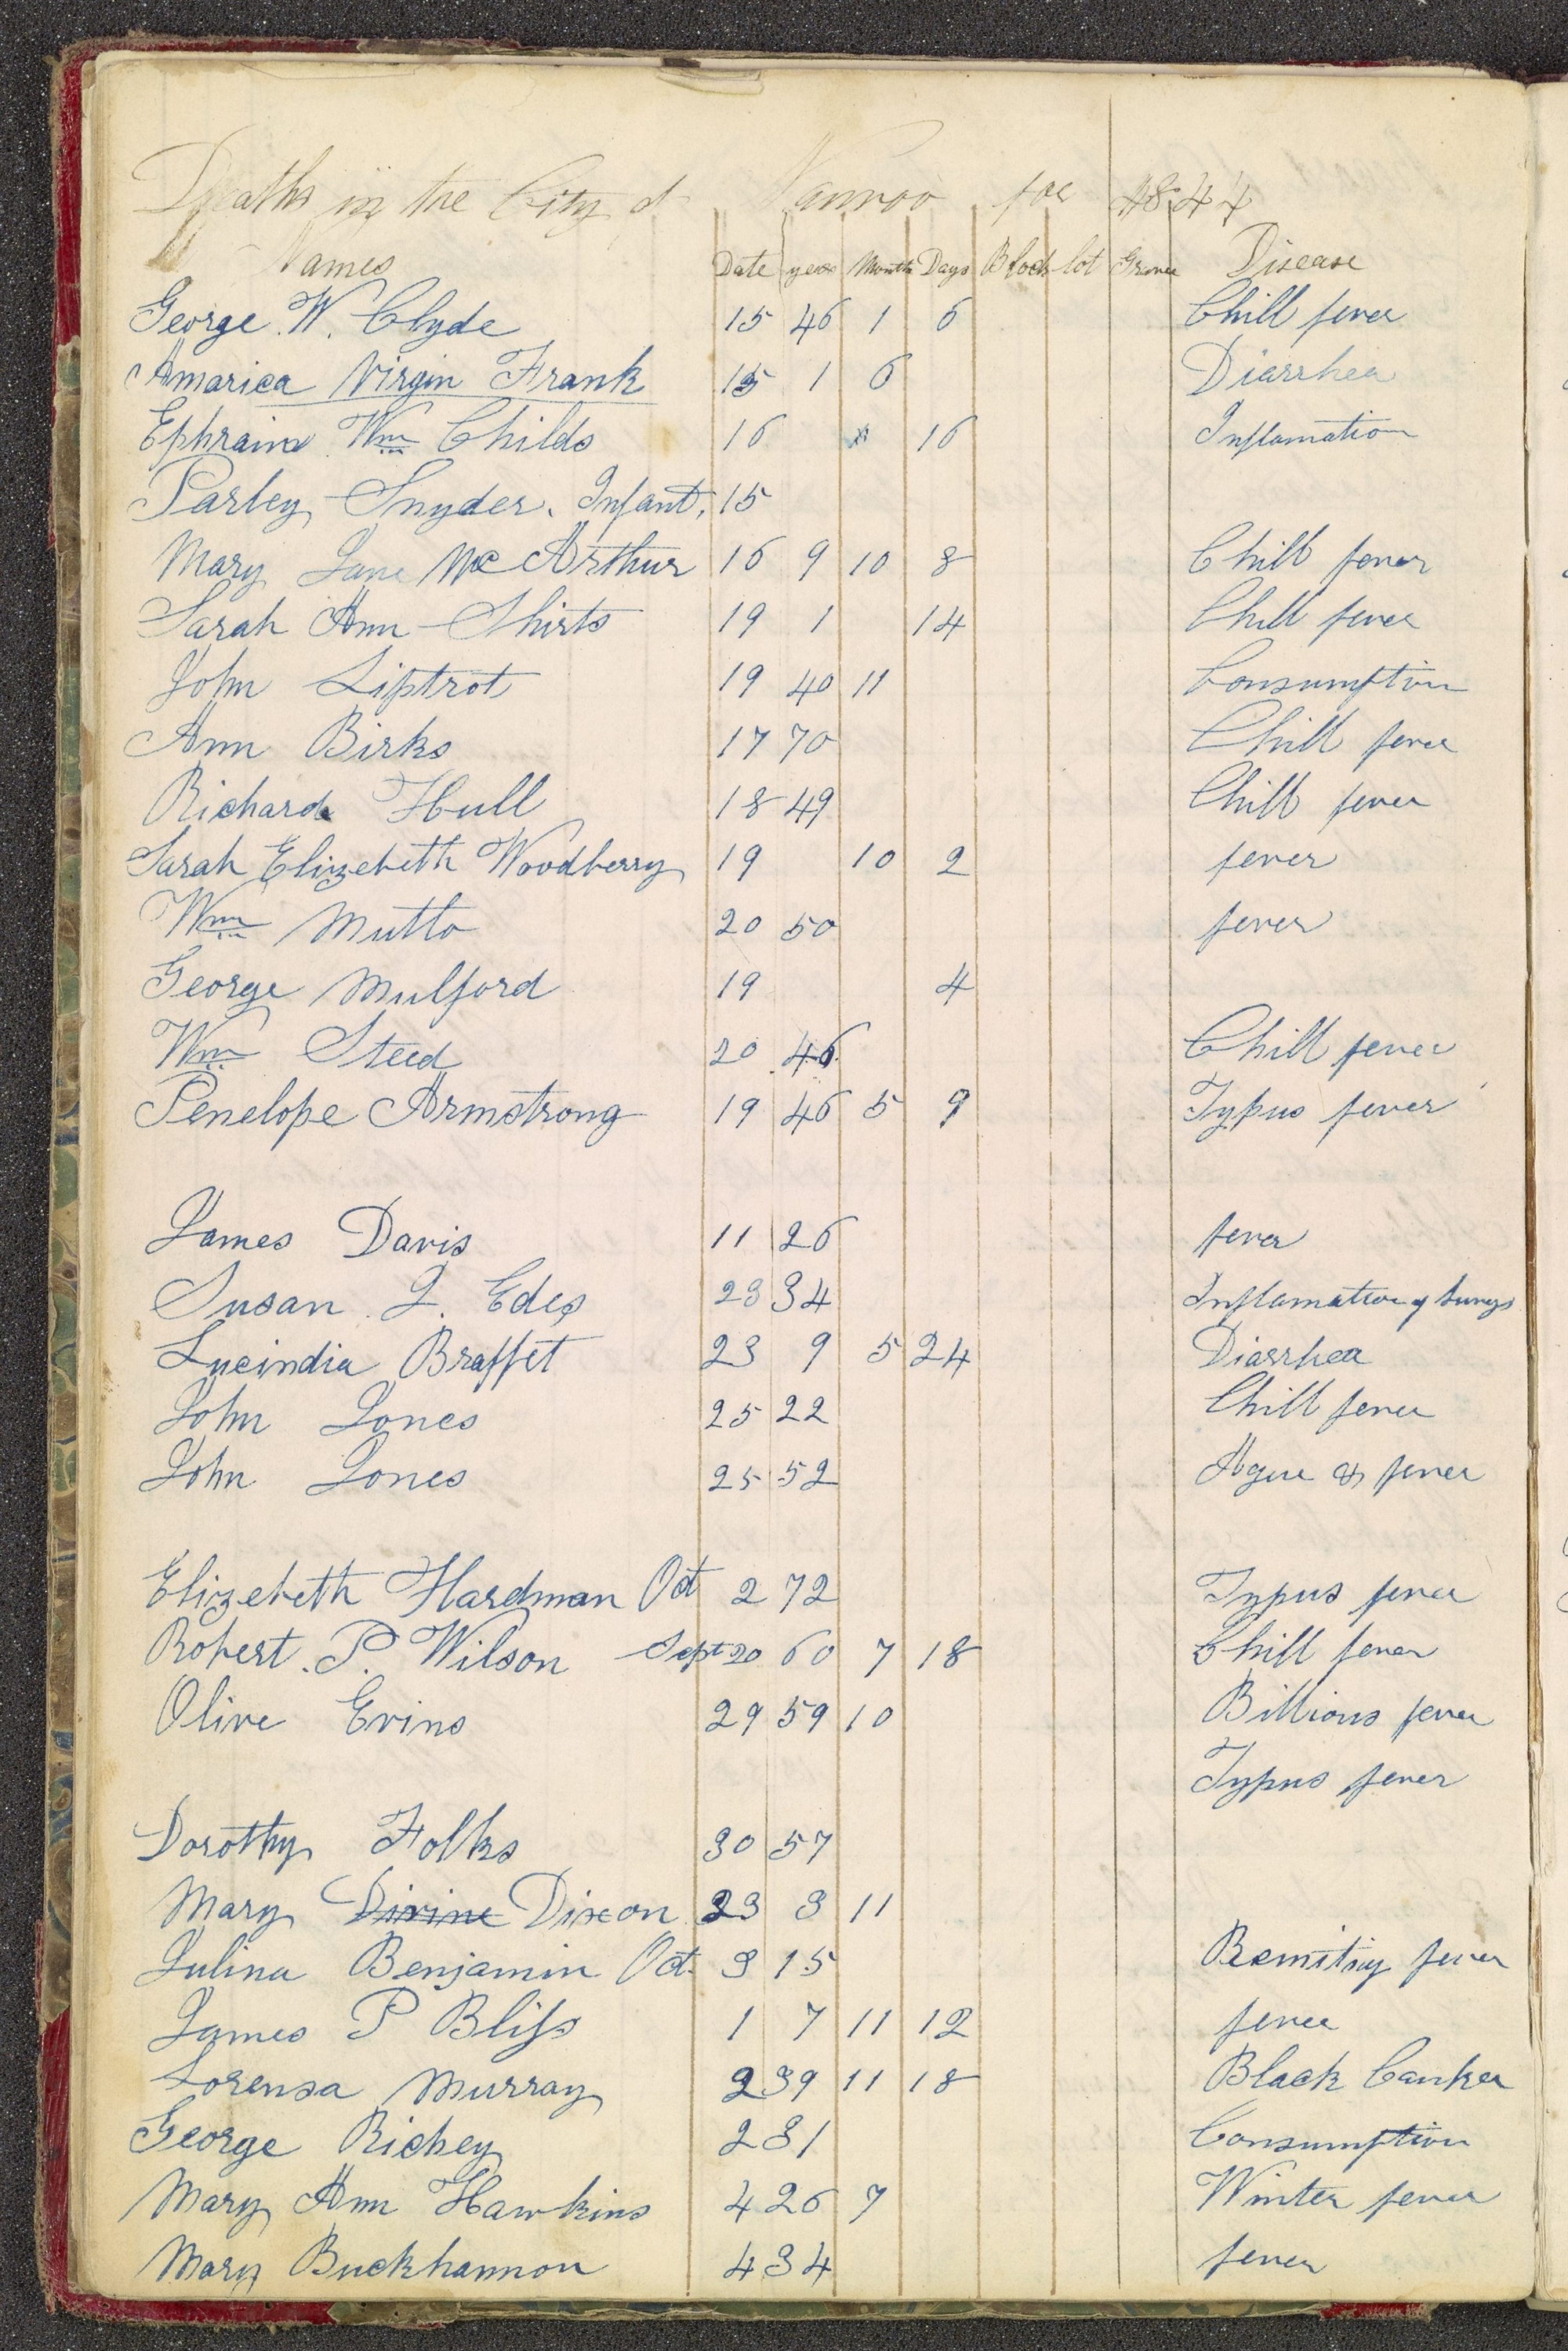 Deaths in the City of Nauvoo for 1844
Names Date year Month Days Block lot Grave Disease
George W. Clyde 15 46 1 6 Chill fever
Amarica Virgin Frank 15 1 6 Diarrhea
Ephraim Wm Childs 16 16 Inflamation
Parley Snyder. Infant, 15
Mary Jane McArthur 16 9 10 8 Chill fever
Sarah Ann Shirts 19 1 14 Chill fever
John Liptrot 19 40 11 Consumption
Ann Birks 17 70 Chill fever
Richard Hull 18 49 Chill fever
Sarah Elizebeth Woodberry 19 10 2 fever
Wm Mutto 20 50 fever
George Mulford 19 4
Wm Steed 20 46 Chill fever
Penelope Armstrong 19 46 5 9 Typus fever
James Davis 11 26 fever
Susan J. Edes 23 34 Inflamation of Lungs
Lucindia Braffet 23 9 5 24 Diarrhea
John Jones 25 22 Chill fever
John Jones 25 52 Ague & fever
Elizebeth Hardman Oct 2 72 Typus fever
Robert. P. Wilson Sept 20 60 7 18 Chill fever
Olive Evins 29 59 10 Billious fever
Typus fever
Dorothy Folks 30 57
Mary Divine Dixon 23 3 11
Julina Benjamin Oct. 3 15 Remitiny fever
James P Bliss 1 7 11 12 fever
Lorensa Murray 2 39 11 18 Black Canker
George Richey 2 31 Consumption
Mary Ann Hawkins 4 26 7 Winter fever
Mary Buckhannon 4 34 fever